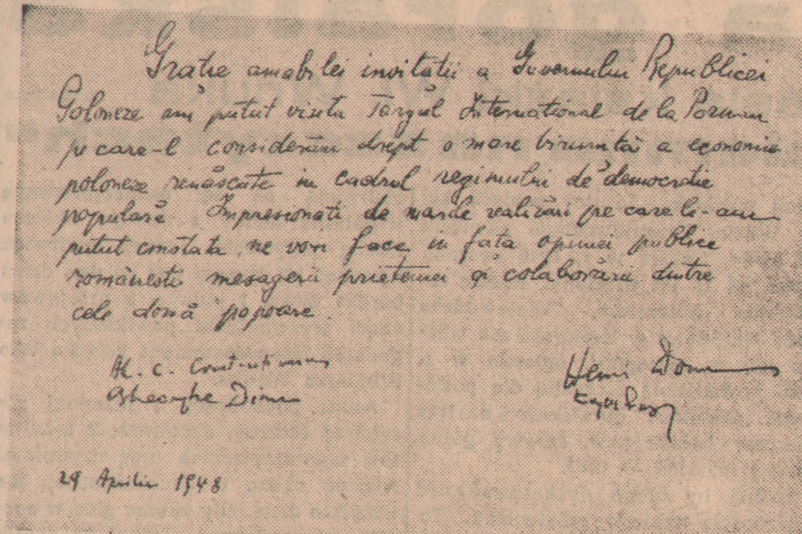 Grație amabilei invitații a Guvernului Republicei
Poloneze am putut vizita Târgul Internațional de la Poznan
pe care-l considerăm drept o mare biruință a economiei
poloneze renăscute in cadrul regimului de democratie
populară. Impresionați de marile realizări pe care le-am
putut constata, ne vom face in fața opiniei publice
românești mesagerii prieteniei și colaborării dintre
cele două popoare.
Al. C. Constantinescu
Gheorghe Dinu
Henri
29 Aprilie 1948